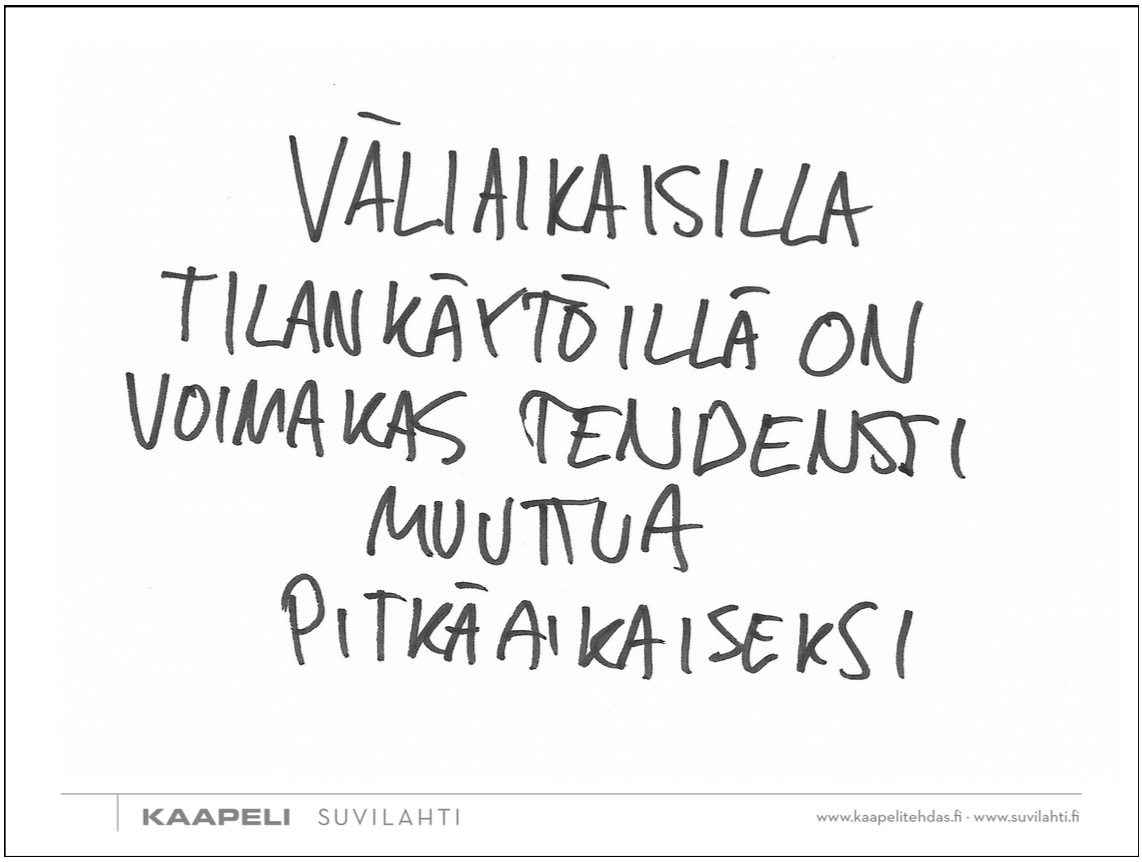 VÄLIAIKAISILLA
TILANKÄYTÖILLÄ ON
VOIMAKAS TENDENSSI
MUUTTUA
PITKÄAIKAISEKSI
KAAPELI SUVILAHTI
www.kaapelitehdas.fi · www.suvilahti.fi